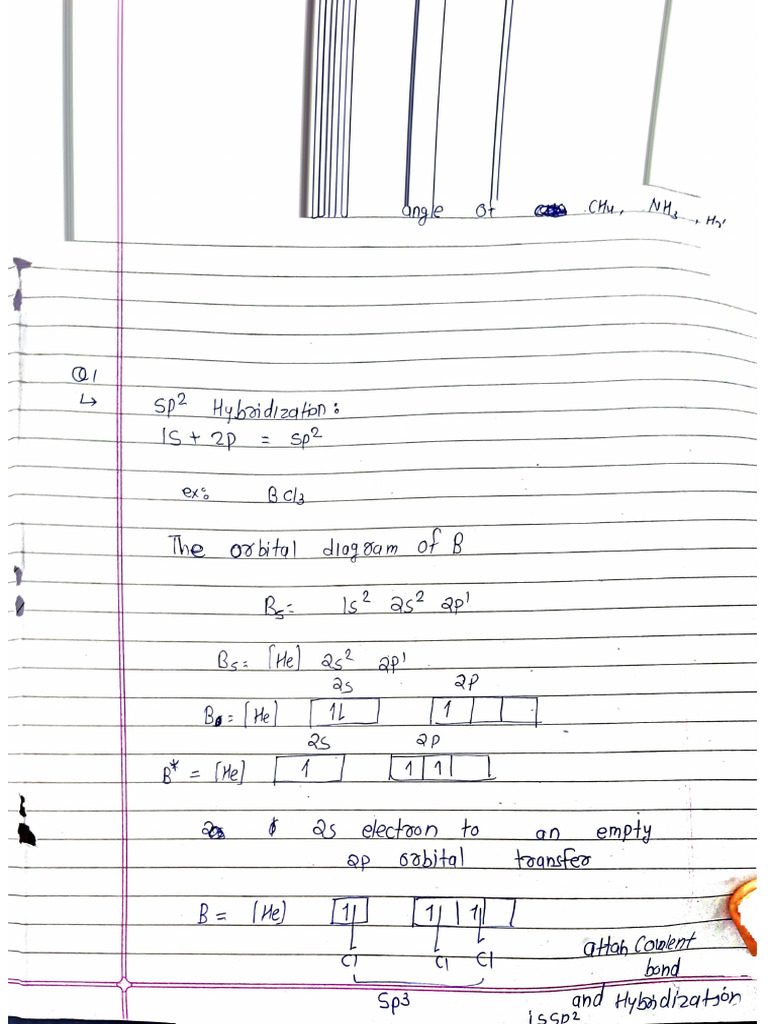 angle of CH4, NH3, H2
Q1
↳ SP² Hybridization:
1S + 2P = SP²
ex: BCl3
The orbital diagram of B
B5 = 1s² 2s² 2p¹
B5 = [He] 2s² 2p¹
2s 2P
B = [He] 1L 1
2s 2p
B* = [He] 1 1 1
2s electron to an empty
2p orbital transfer
B = [He] 1 1 1
Cl Cl Cl
attah Covolent
bond
SP3 and Hybridization
is sp²